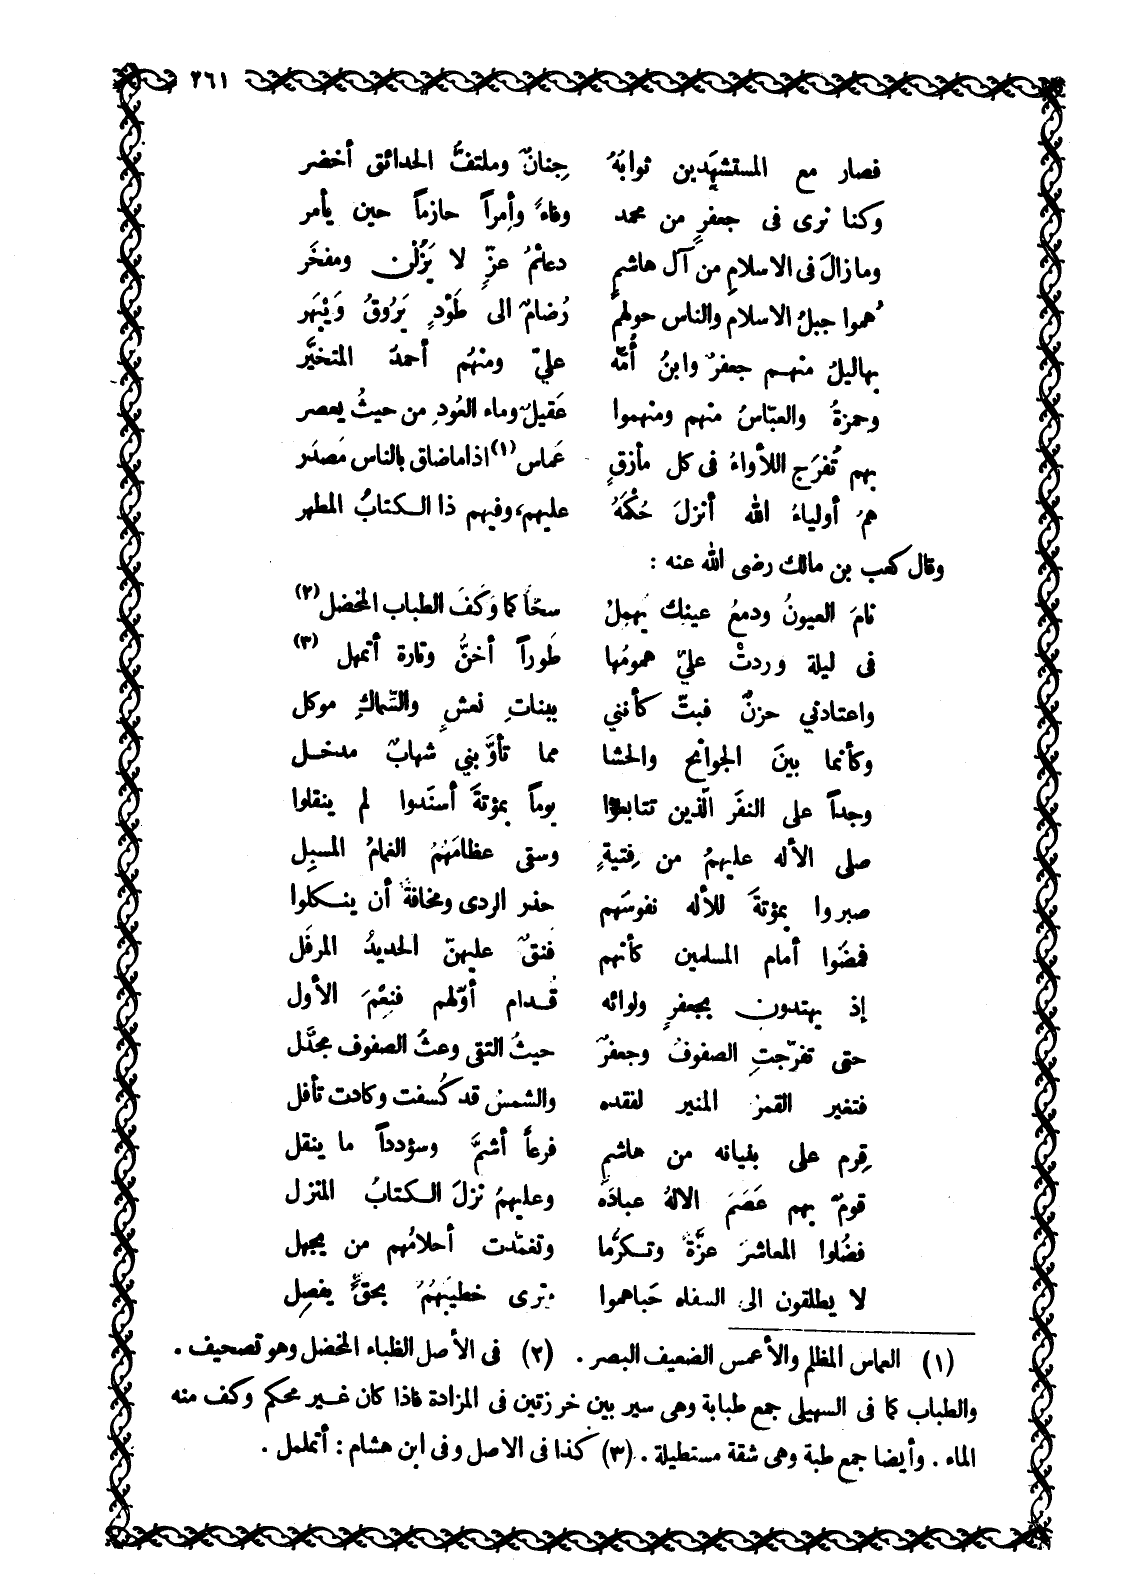 ٢٦١
فصار مع المستشهَدين ثوابُهُ جِنانٌ وملتفُّ الحدائق أخضر
وكنا نرى فى جعفرٍ من محمد وفاءً وأمراً حازماً حين يأمر
وما زالَ فى الاسلامِ من آل هاشمٍ دعائمُ عزٍّ لا يَزُلْن ومفخَر
هُموا جبلُ الاسلام والناس حولهمُ رُضامٌ الى طَوْدٍ يَرُوقُ وَيَبْهَر
بهاليلُ منهـم جعفرٌ وابنُ أُمِّه عليّ ومنهُم أحمدُ المتخيَّر
وحمزةُ والعبّاسُ منهم ومنهموا عَقيلٌ وماء العُودِ من حيثُ يعصر
بهم تُفرَج اللأواءُ فى كل مأزقٍ عَماس (١) اذا ماضاق بالناس مَصدَر
همُ أولياءُ الله أنزلَ حُكْمَهُ عليهم، وفيهم ذا الـكتابُ المطهر
وقال كعب بن مالك رضى الله عنه :
نامَ العيونُ ودمعُ عينك يَهمِلُ سحّاً كما وَكَفَ الطباب المخضل (٢)
فى ليلة وردتْ عليّ همومُها طَوراً أخنُّ وتارة أتمهل (٣)
واعتادني حزنٌ فبتّ كأنني ببناتِ نعشٍ والسِّماكِ موكل
وكأنما بينَ الجوانح والحشا مما تأوَّبني شهابٌ مدخـل
وجداً على النفَر الّذين تتابعوا يوماً بمؤتةَ أسنَدوا لم ينقلوا
صلى الأله عليهمُ من فِتيةٍ وسقى عظامَهُمُ الغمامُ المسبِل
صبروا بمؤتةَ للأله نفوسَهم حذر الردى ومخافةً أن ينـكلوا
فمضَوا أمام المسلمين كأنهم فَنقٌ عليهنّ الحديدُ المرفَل
إذ يهتدون بجعفرٍ ولوائه قُـدام أوّلهم فنِعْمَ الأول
حتى تفرّجتِ الصفوفُ وجعفرٌ حيثُ التقى وعثُ الصفوف مجدَّل
فتغير القمرُ المنير لفقده والشمسُ قد كُسفت وكادت تأفل
قِرم على بنيانه من هاشمٍ فرعاً أشمَّ وسؤدداً ما ينقل
قومٌ بهم عَصَمَ الالهُ عبادَهُ وعليهمُ نزلَ الـكتابُ المنزل
فضُلوا المعاشرَ عزَّةً وتـكرُّما وتغمّدت أحلامُهم من يجهل
لا يطلقون الى السفاه حَباهموا وترى خطيبَهُمُ بحقٍّ يفصِل
(١) العماس المظلم والأعمس الضعيف البصر . (٢) فى الأصل الظباء المخضل وهو تصحيف .
والطباب كما فى السهيلى جمع طبابة وهى سير بين خرزتين فى المزادة فاذا كان غـير محكم وكف منه
الماء . وأيضا جمع طبة وهى شقة مستطيلة . (٣) كذا فى الاصل وفى ابن هشام : أتململ .